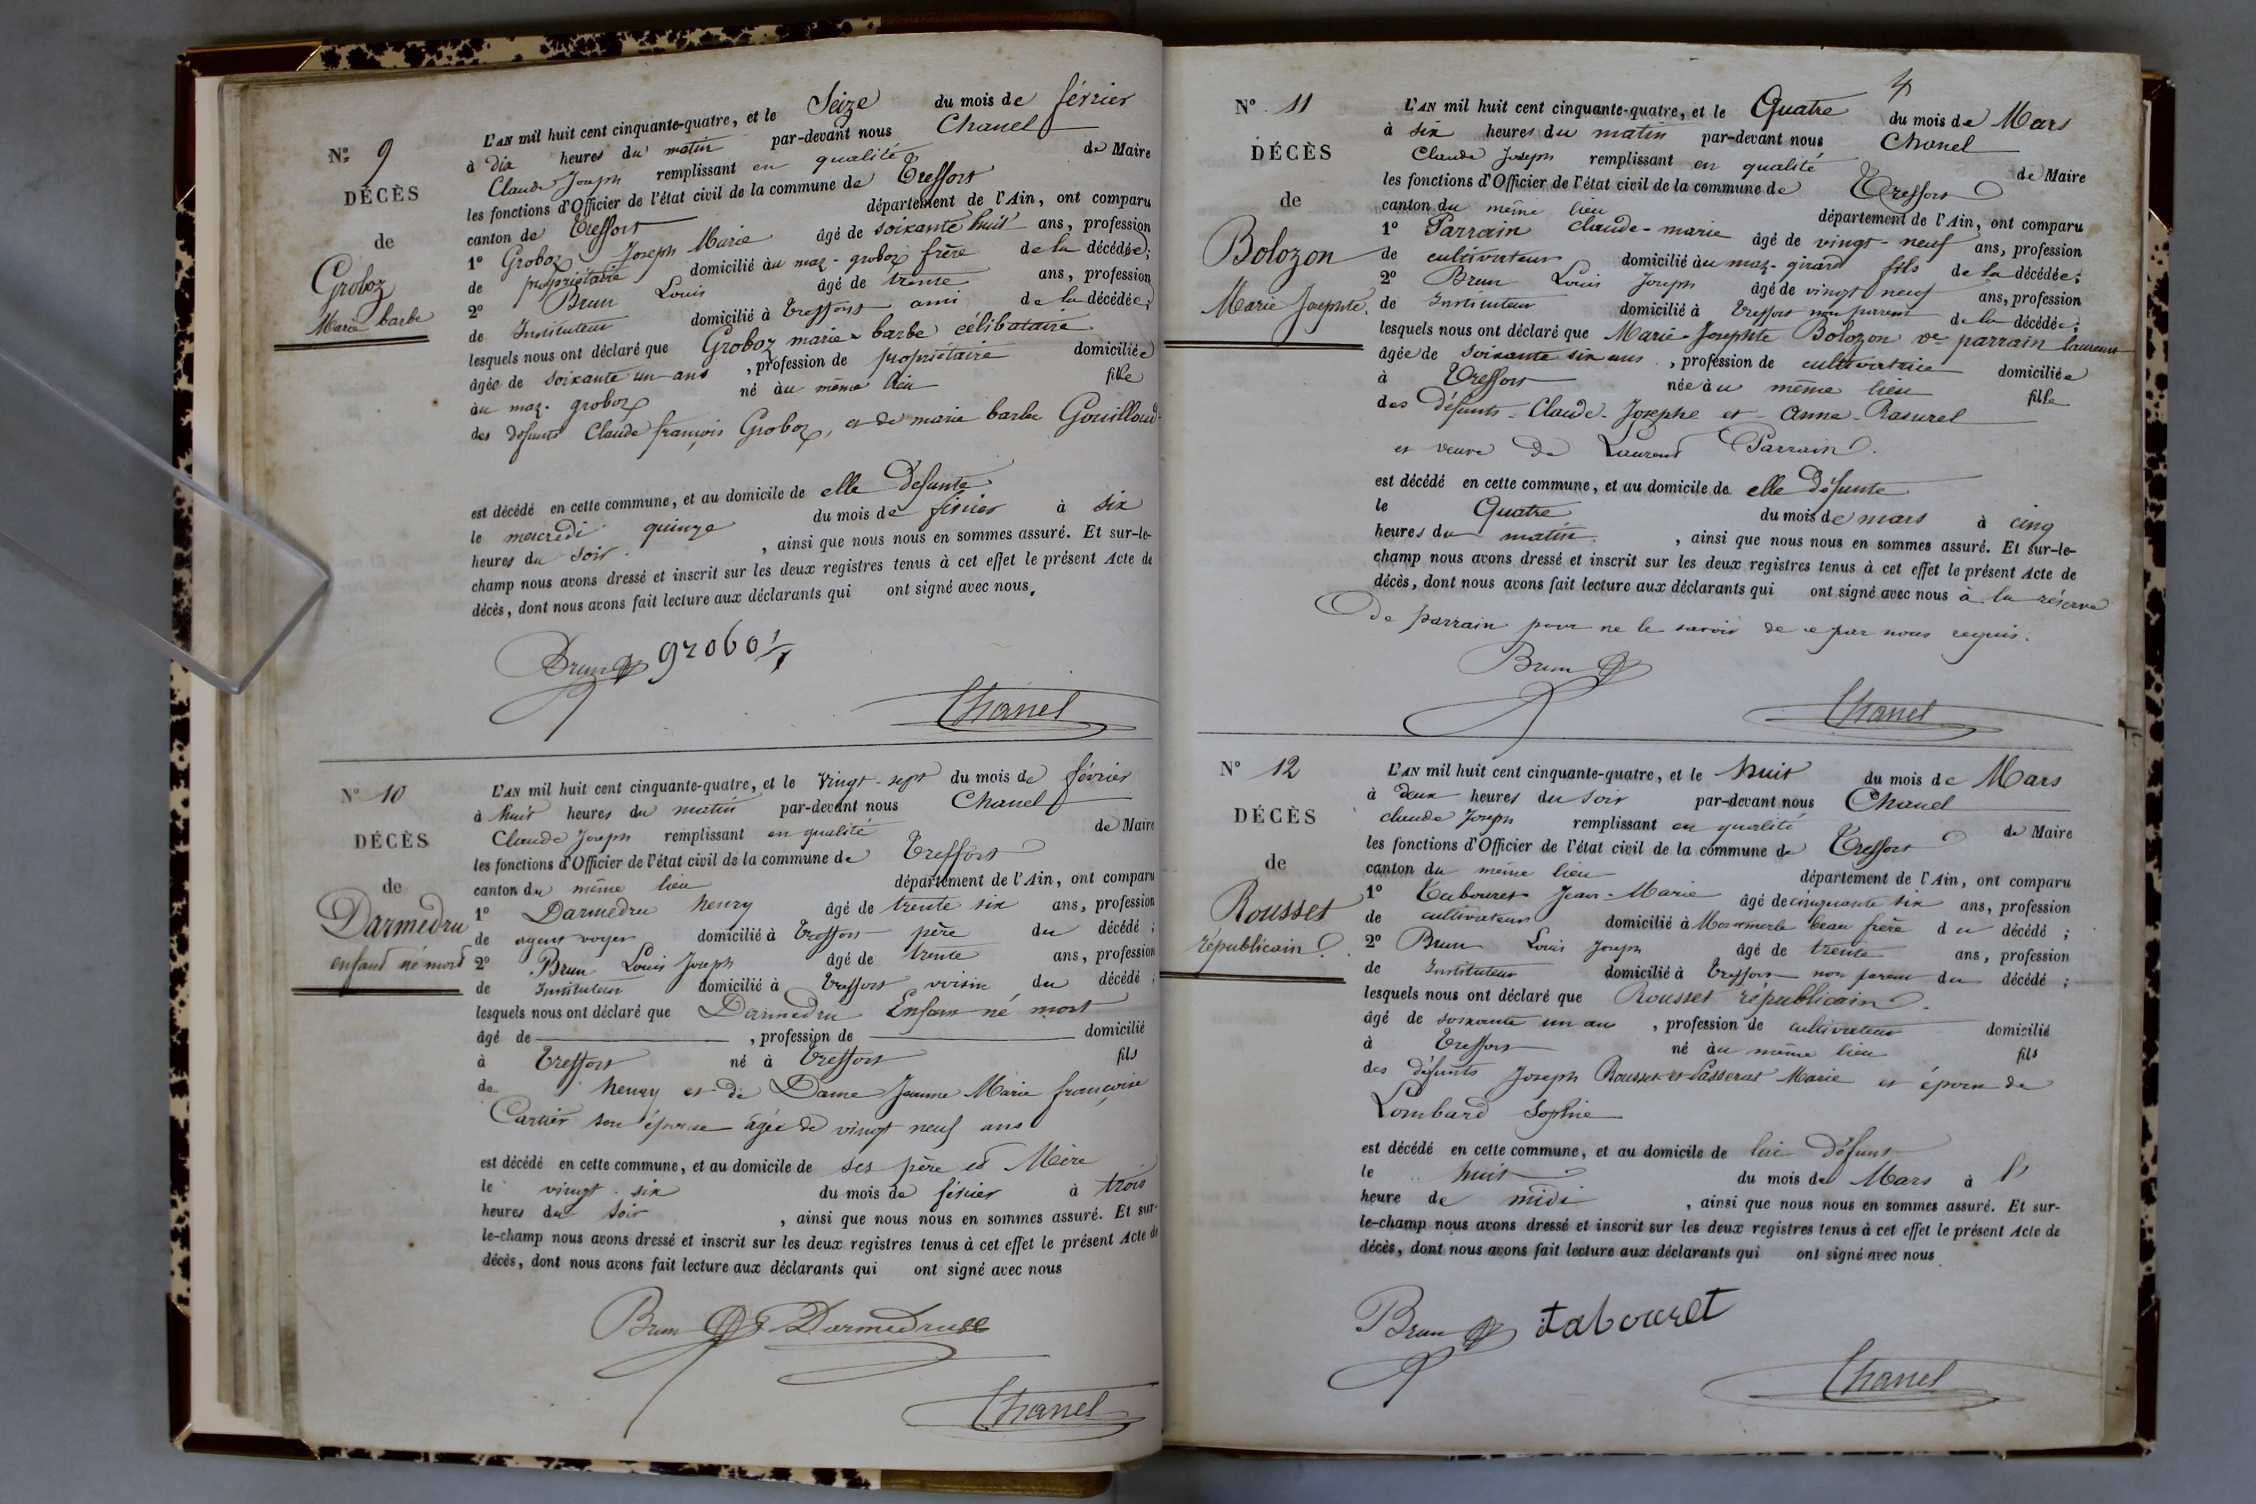 N° 9
DÉCÈS
de
Groboz
Marie barbe
L'AN mil huit cent cinquante-quatre, et le Seize du mois de février
à dix heures du matin par-devant nous Chanel
Claude Joseph remplissant en qualité de Maire
les fonctions d'Officier de l'état civil de la commune de Treffort
canton de Treffort département de l'Ain, ont comparu
1° Groboz Joseph Marie âgé de soixante huit ans, profession
de propriétaire domicilié au maz-groboz frère de la décédée;
2° Brun Louis âgé de trente ans, profession
de Instituteur domicilié à Treffort ami de la décédée;
lesquels nous ont déclaré que Groboz marie barbe célibataire
âgée de soixante un ans, profession de propriétaire domiciliée
au maz-groboz né au même lieu fille
des défunts Claude françois Groboz, et de marie barbe Gouilloud
est décédé en cette commune, et au domicile de elle défunte
le mercredi quinze du mois de février à six
heures du soir, ainsi que nous nous en sommes assuré. Et sur-le-
champ nous avons dressé et inscrit sur les deux registres tenus à cet effet le présent Acte de
décès, dont nous avons fait lecture aux déclarants qui ont signé avec nous.
Brun groboz
Chanel
N° 10
DÉCÈS
de
Darmedru
enfant né mort
L'AN mil huit cent cinquante-quatre, et le vingt-sept du mois de février
à huit heures du matin par-devant nous Chanel
Claude Joseph remplissant en qualité de Maire
les fonctions d'Officier de l'état civil de la commune de Treffort
canton du même lieu département de l'Ain, ont comparu
1° Darmedru henry âgé de trente six ans, profession
de agent voyer domicilié à Treffort père du décédé;
2° Brun Louis Joseph âgé de trente ans, profession
de Instituteur domicilié à Treffort voisin du décédé;
lesquels nous ont déclaré que Darmedru Enfant né mort
âgé de , profession de domicilié
à Treffort né à Treffort fils
de henry et de Dame Jeanne Marie françoise
Cartier son épouse âgée de vingt neuf ans
est décédé en cette commune, et au domicile de ses père et Mère
le vingt-six du mois de février à trois
heures du soir, ainsi que nous nous en sommes assuré. Et sur-
le-champ nous avons dressé et inscrit sur les deux registres tenus à cet effet le présent Acte de
décès, dont nous avons fait lecture aux déclarants qui ont signé avec nous
Brun Darmedru
Chanel
4
N° 11
DÉCÈS
de
Bolozon
Marie Josephte.
L'AN mil huit cent cinquante-quatre, et le Quatre du mois de Mars
à six heures du matin par-devant nous Chanel
Claude Joseph remplissant en qualité de Maire
les fonctions d'Officier de l'état civil de la commune de Treffort
canton du même lieu département de l'Ain, ont comparu
1° Parrain Claude-marie âgé de vingt-neuf ans, profession
de cultivateur domicilié au maz-girard fils de la décédée;
2° Brun Louis Joseph âgé de vingt neuf ans, profession
de Instituteur domicilié à Treffort non parent de la décédée;
lesquels nous ont déclaré que Marie-Josephte Bolozon ve parrain laurent
âgée de soixante six ans, profession de cultivatrice domiciliée
à Treffort née au même lieu fille
des défunts Claude-Josephe et Anne-Rasurel
et veuve de Laurent Parrain.
est décédé en cette commune, et au domicile de elle défunte
le Quatre du mois de mars à cinq
heures du matin, ainsi que nous nous en sommes assuré. Et sur-le-
champ nous avons dressé et inscrit sur les deux registres tenus à cet effet le présent Acte de
décès, dont nous avons fait lecture aux déclarants qui ont signé avec nous à la réserve
De parrain pour ne le savoir de ce par nous requis.
Brun
Chanel
N° 12
DÉCÈS
de
Rousset
républicain.
L'AN mil huit cent cinquante-quatre, et le huit du mois de Mars
à deux heures du soir par-devant nous Chanel
claude Joseph remplissant en qualité de Maire
les fonctions d'Officier de l'état civil de la commune de Treffort
canton du même lieu département de l'Ain, ont comparu
1° Tabouret Jean-Marie âgé de cinquante six ans, profession
de cultivateur domicilié à beau frère du décédé;
2° Brun Louis Joseph âgé de trente ans, profession
de Instituteur domicilié à Treffort non parent du décédé;
lesquels nous ont déclaré que Rousset républicain
âgé de soixante un an, profession de cultivateur domicilié
à Treffort né au même lieu fils
des défunts Joseph Rousset et Passerat Marie et époux de
Lombard Sophie
est décédé en cette commune, et au domicile de lui défunt
le huit du mois de Mars à l'
heure de midi, ainsi que nous nous en sommes assuré. Et sur-
le-champ nous avons dressé et inscrit sur les deux registres tenus à cet effet le présent Acte de
décès, dont nous avons fait lecture aux déclarants qui ont signé avec nous.
Brun tabouret
Chanel